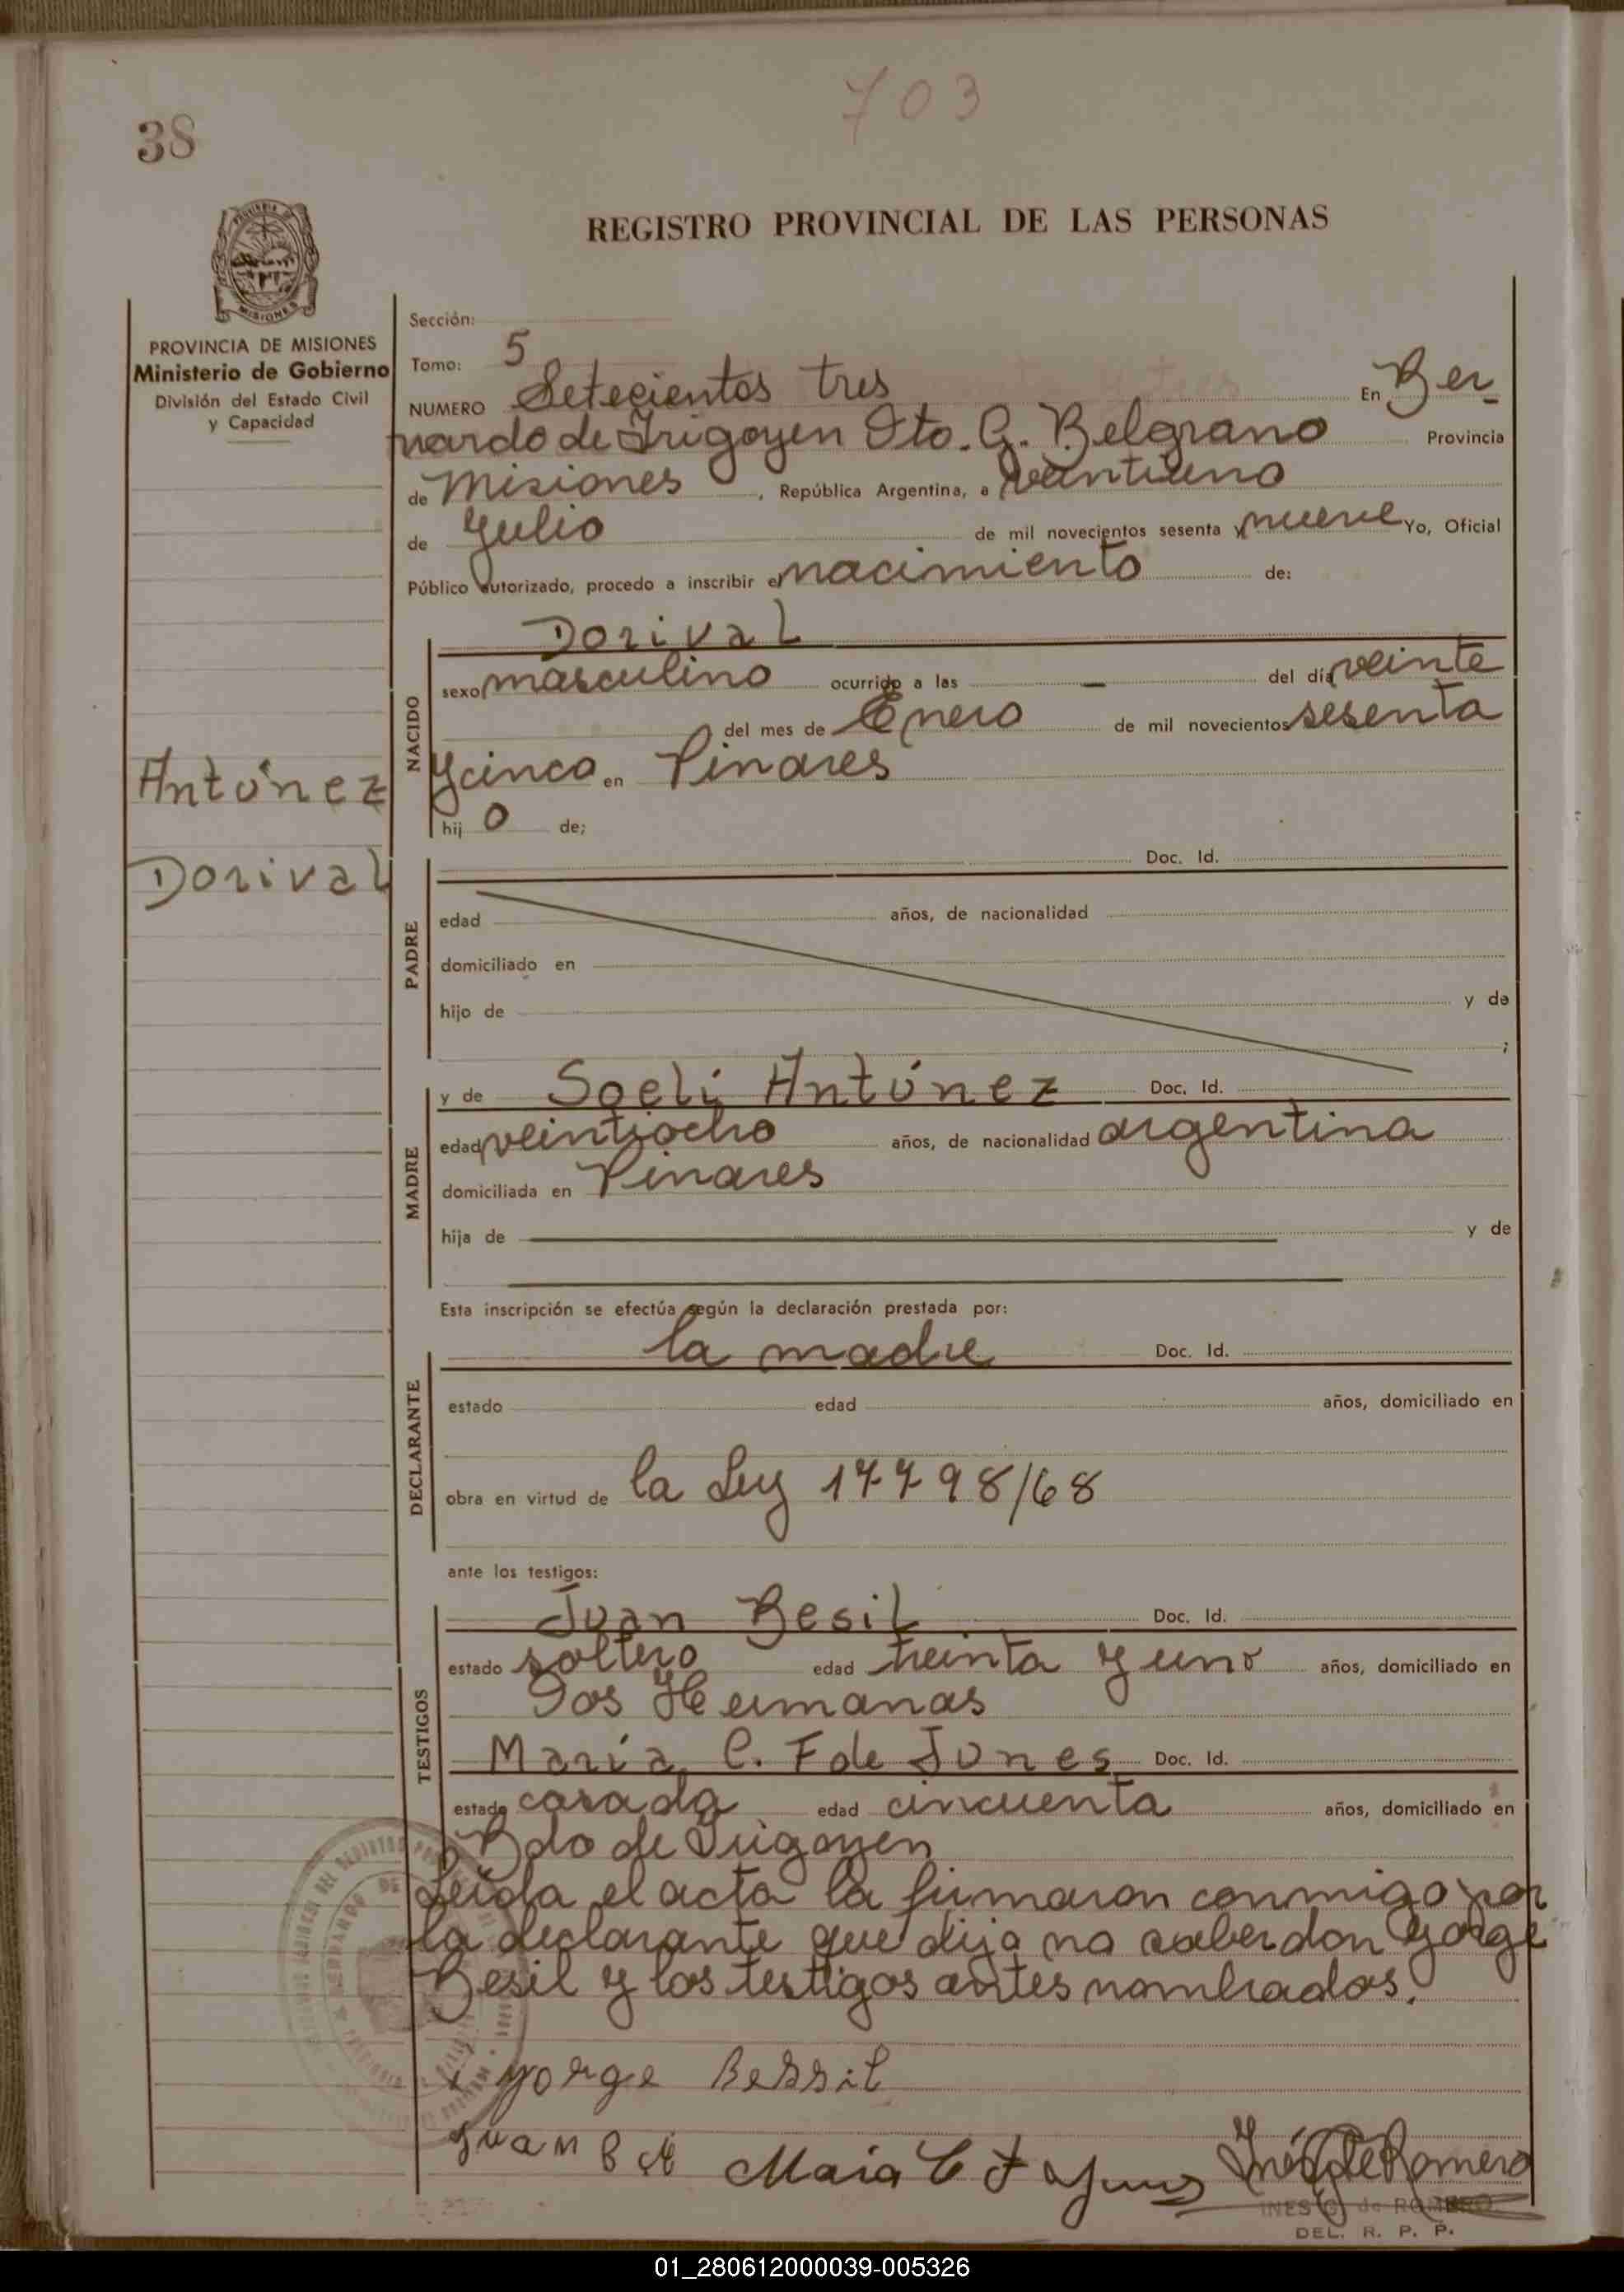 703
38
REGISTRO PROVINCIAL DE LAS PERSONAS
PROVINCIA DE MISIONES
Ministerio de Gobierno
División del Estado Civil
y Capacidad
Antúnez
Dorival
Sección:
Tomo: 5
NUMERO Setecientos tres En Ber
nardo de Irigoyen Dto. G. Belgrano Provincia
de Misiones, República Argentina, a veintiuno
de Julio de mil novecientos sesenta y nueve Yo, Oficial
Público autorizado, procedo a inscribir el nacimiento de:
NACIDO
Dorival
sexo masculino ocurrido a las - del día veinte
del mes de Enero de mil novecientos sesenta
y cinco en Pinares
hij o de;
PADRE
Doc. Id.
edad años, de nacionalidad
domiciliado en
hijo de y de
;
MADRE
y de Soeli Antúnez Doc. Id.
edad veintiocho años, de nacionalidad argentina
domiciliada en Pinares
hija de y de
Esta inscripción se efectúa según la declaración prestada por:
DECLARANTE
la madre Doc. Id.
estado edad años, domiciliado en
obra en virtud de la Ley 17798/68
ante los testigos:
TESTIGOS
Juan Besil Doc. Id.
estado soltero edad treinta y uno años, domiciliado en
Dos Hermanas
María C. F de Junes Doc. Id.
estado casada edad cincuenta años, domiciliado en
Bdo de Irigoyen
Leída el acta la firmaron conmigo por
la declarante que dijo no saber don Yorge
Besil y los testigos antes nombrados.
x yorge Bessil
Juan
Maria C F de Junes
Inés G de Romero
INES G. de ROMERO
DEL. R. P. P.
01_280612000039-005326